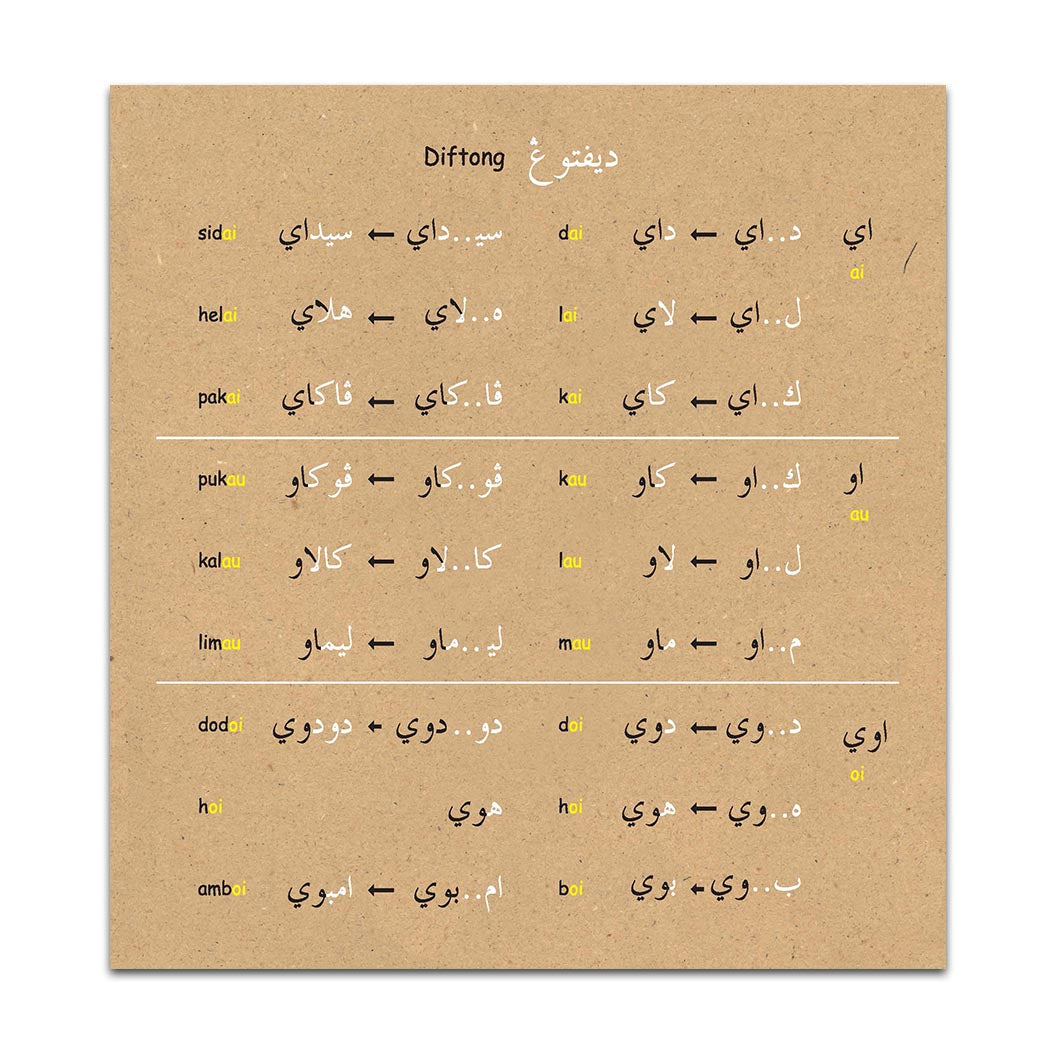 ديفتوڠ Diftong
اي د..اي ← داي dai سيـ..داي ← سيداي sidai
ai
ل..اي ← لاي lai ه..لاي ← هلاي helai
ك..اي ← كاي kai ڤا..كاي ← ڤاكاي pakai
او ك..او ← كاو kau ڤو..كاو ← ڤوكاو pukau
au
ل..او ← لاو lau كا..لاو ← كالاو kalau
م..او ← ماو mau ليـ..ماو ← ليماو limau
اوي د..وي ← دوي doi دو..دوي ← دودوي dodoi
oi
ه..وي ← هوي hoi هوي hoi
ب..وي ← بوي boi ام..بوي ← امبوي amboi